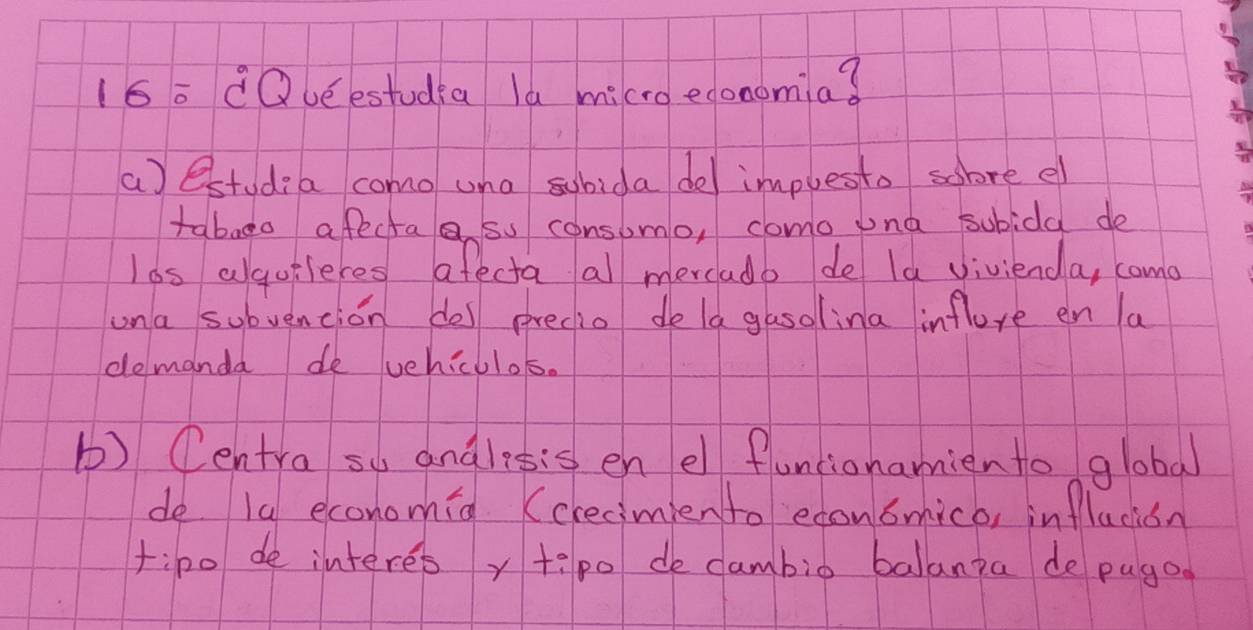 16= ¿Qué estudia la microeconomia?
a) Estudia como una subida del impuesto sobre el
tabaco afecta a su consumo, como una subida de
los alquileres afecta al mercado de la vivienda, como
una subvención del precio de la gasolina influye en la
demanda de vehículos.
b) Centra su análisis en el funcionamiento global
de la economía (crecimiento económico, inflación
tipo de interés y tipo de cambio balanza de pago.